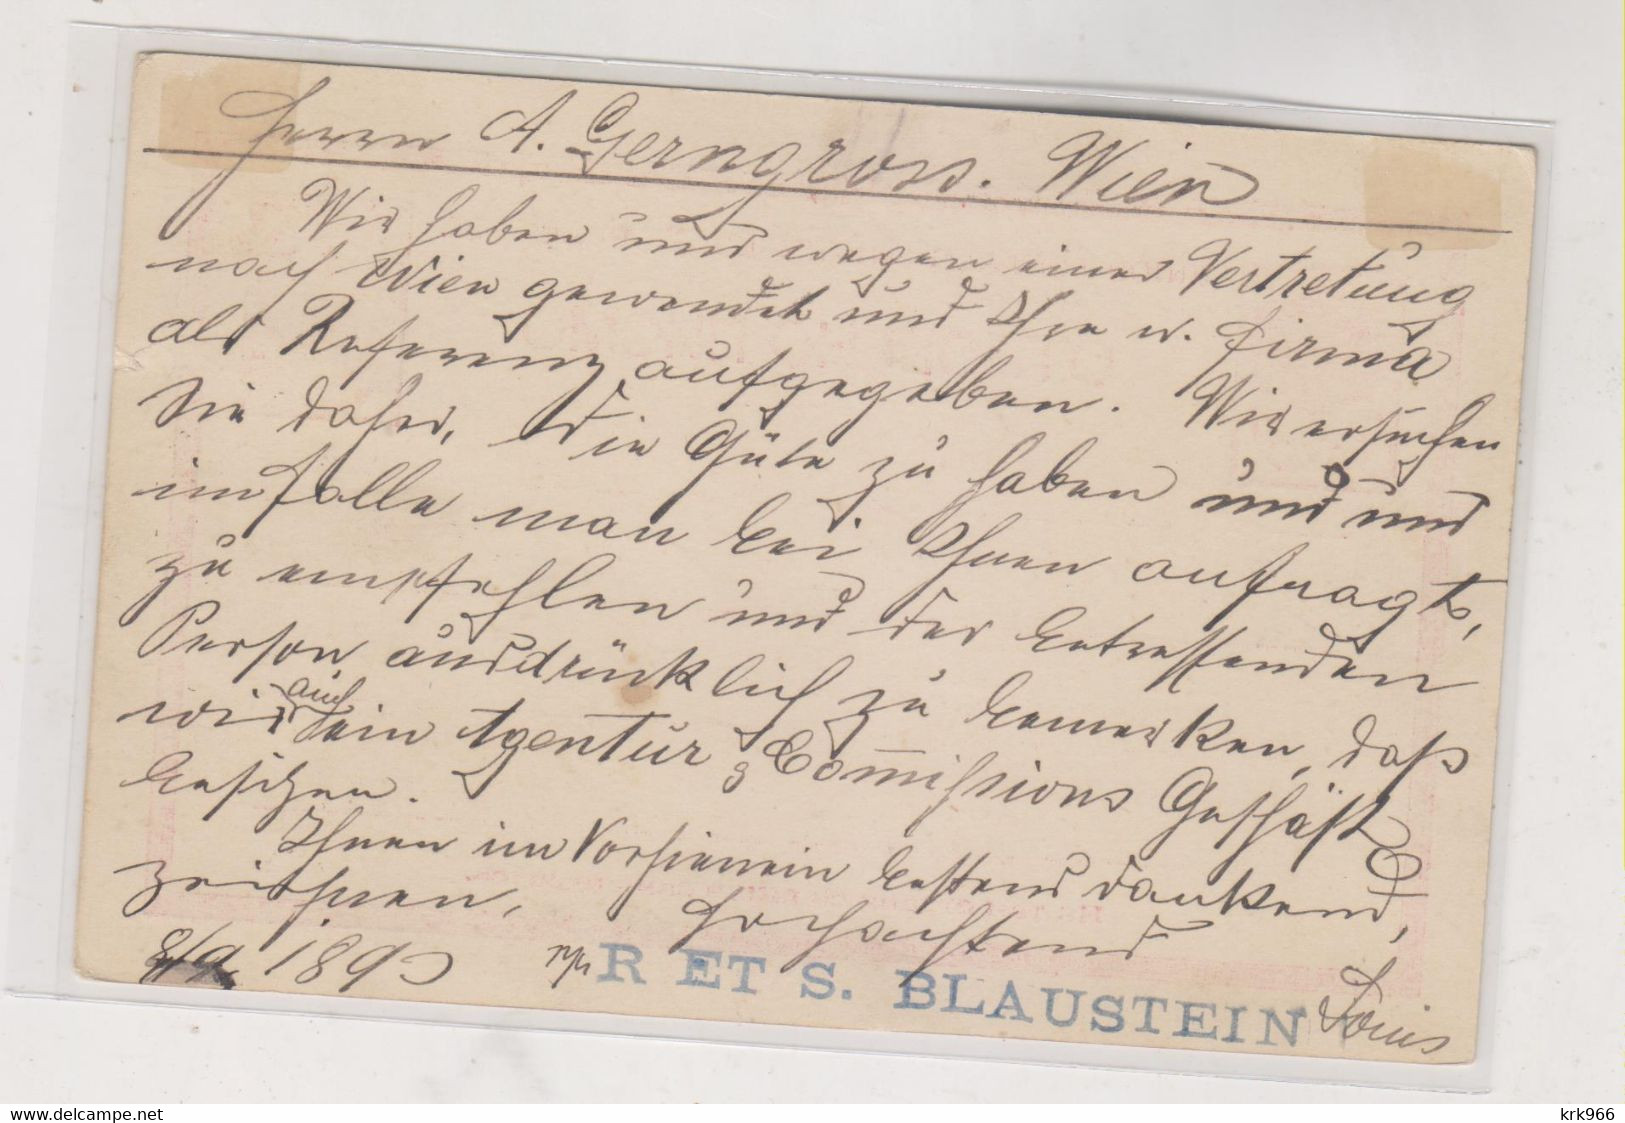 Herrn A. Gerngross. Wien
Wir haben uns wegen einer Vertretung
nach Wien gewendet und Ihre w. Firma
als Referenz aufgegeben. Wir ersuchen
Sie daher, die Güte zu haben und uns
im Falle man bei Ihnen anfragt,
zu empfehlen und der betreffenden
Person ausdrücklich zu bemerken, daß
wir auch ein Agentur & Commissions Geschäft
besitzen.
Ihnen im Vorhinein bestens dankend,
zeichnen,
Hochachtend
8/9. 1893
R ET S. BLAUSTEIN
Louis
krk966